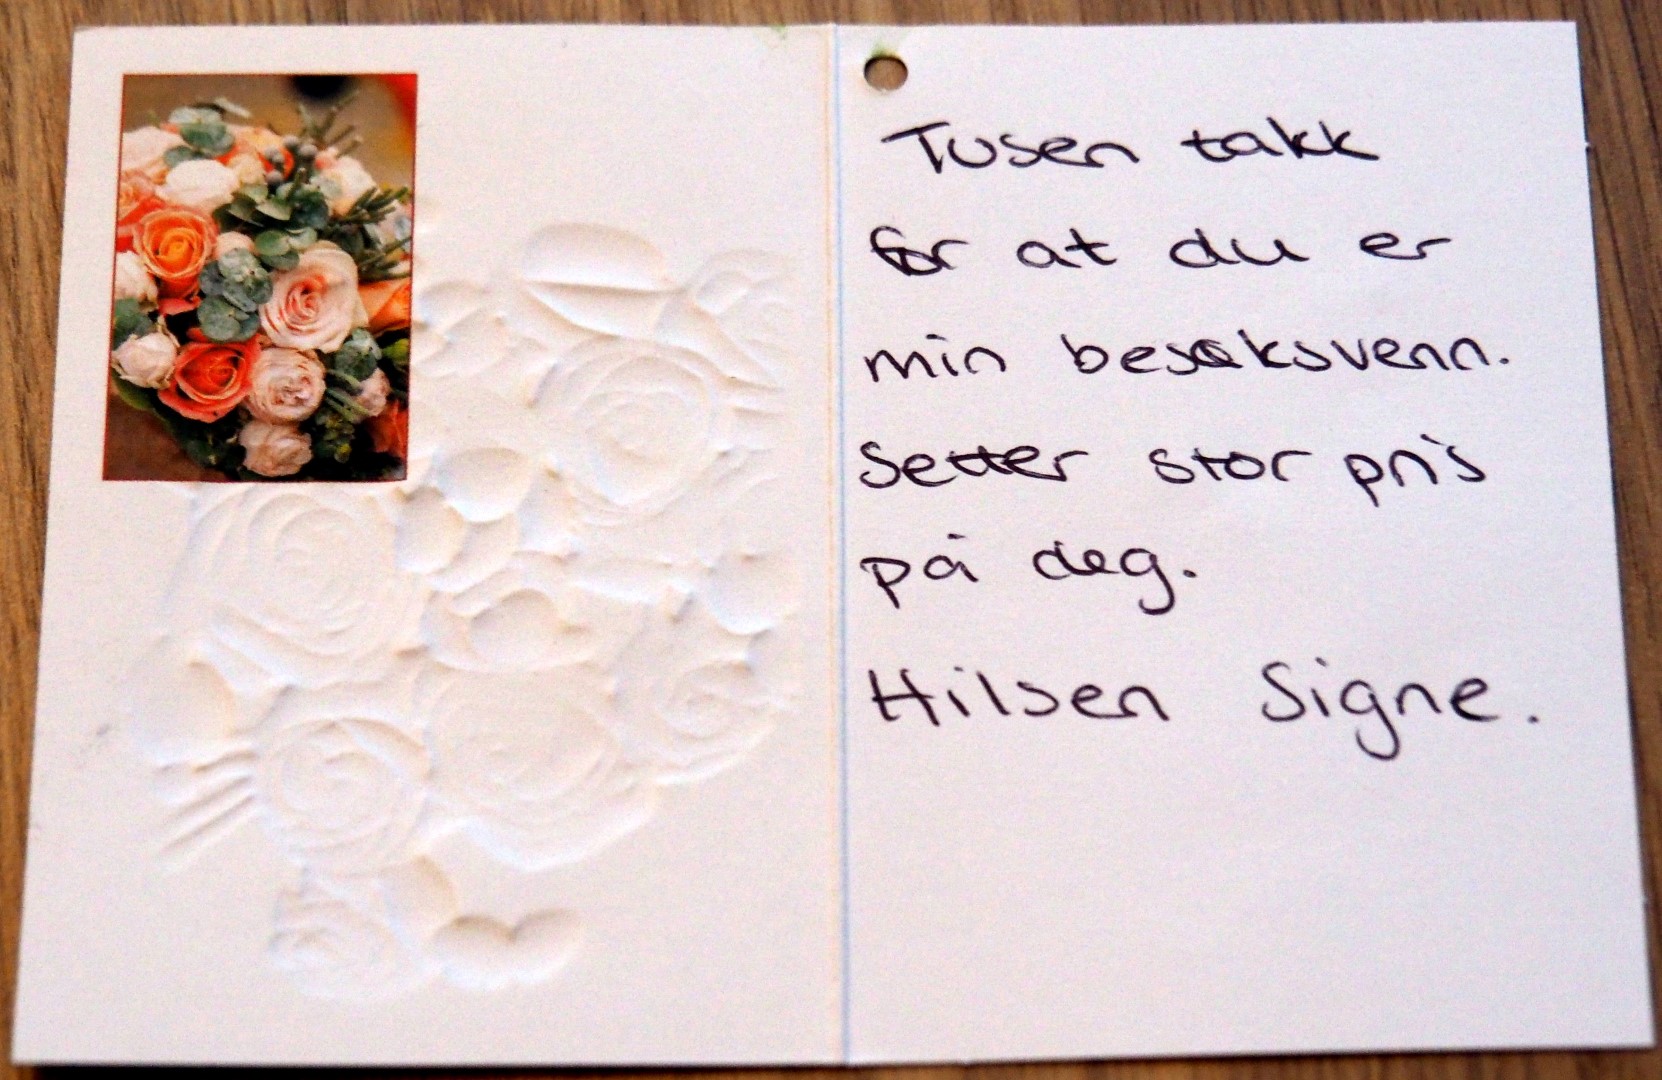 Tusen takk
for at du er
min besøksvenn.
Setter stor pris
på deg.
Hilsen Signe.